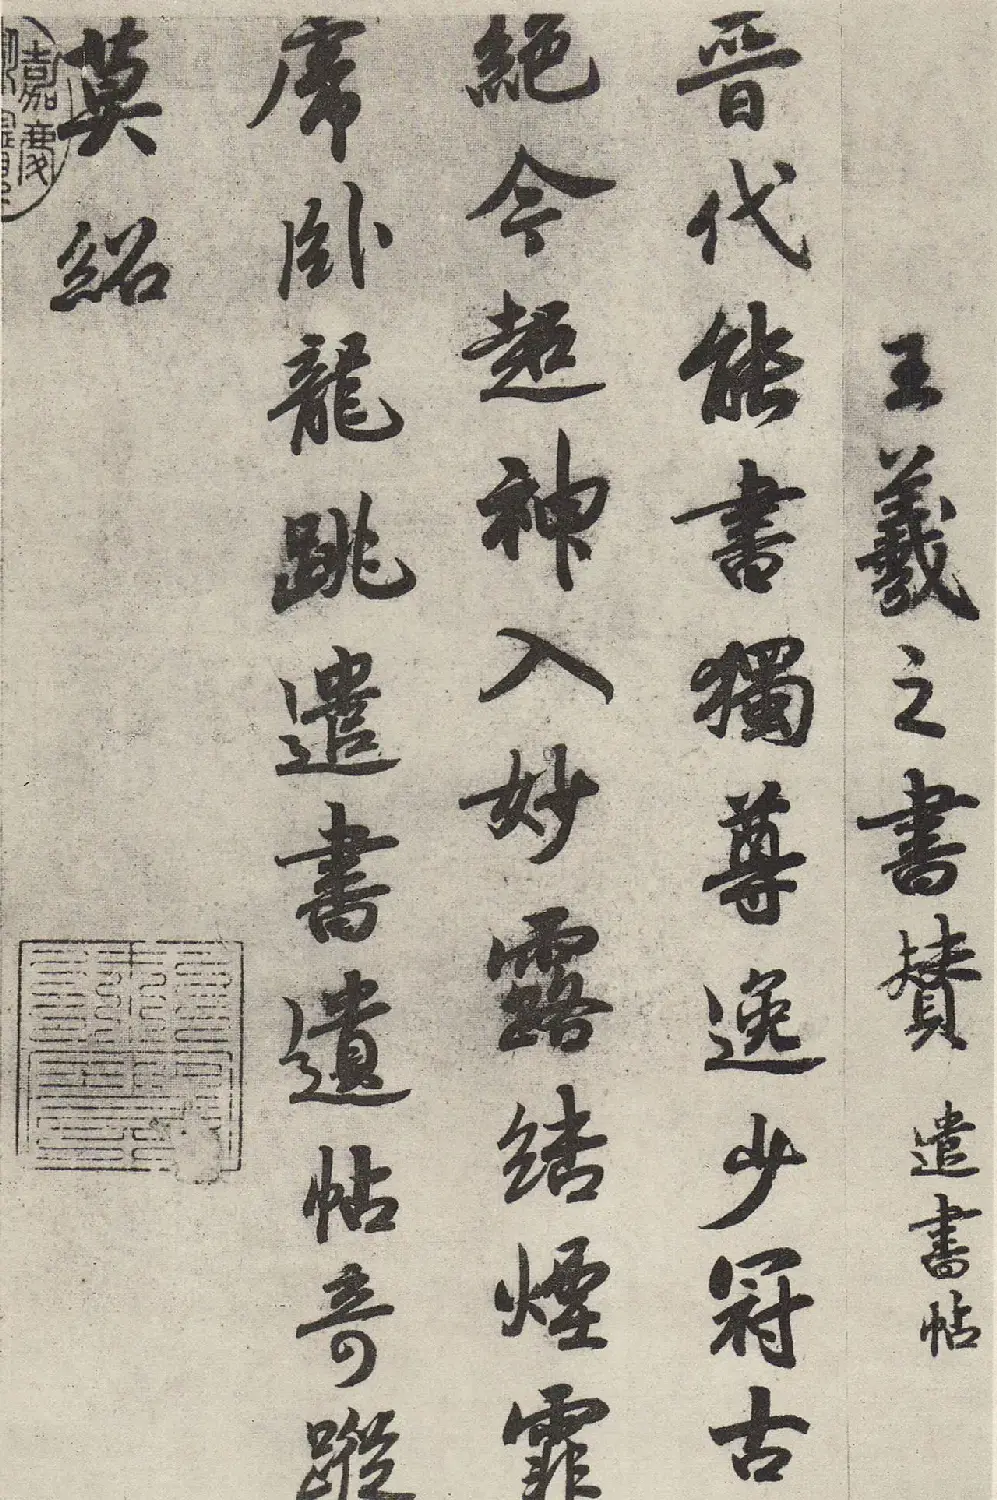 王羲之書賛 遣書帖
晋代能書獨尊逸少冠古
絕今超神入妙露結煙霏
席卧龍跳遣書遺帖奇蹤
莫紹
嘉慶